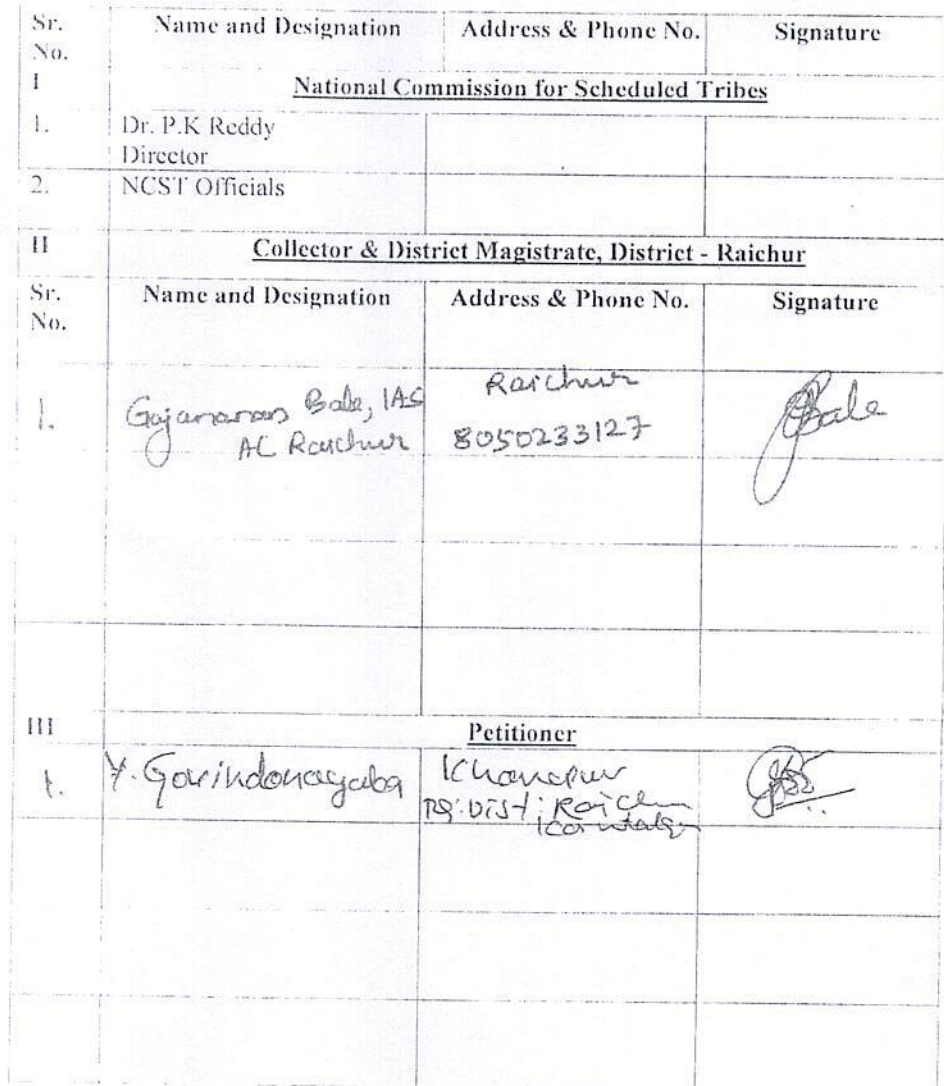 Sr. No. Name and Designation Address & Phone No. Signature
I National Commission for Scheduled Tribes
1. Dr. P.K Reddy
Director
2. NCST Officials
II Collector & District Magistrate, District - Raichur
Sr. No. Name and Designation Address & Phone No. Signature
1. Bale, IAS Raichur Bale
AC Raichur 8050233127
III Petitioner
1. Y. Khanapur
Dist: Raichur